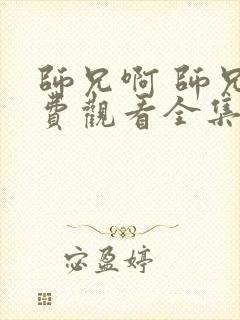 師兄啊 師兄
費觀看全集
宓盈婷